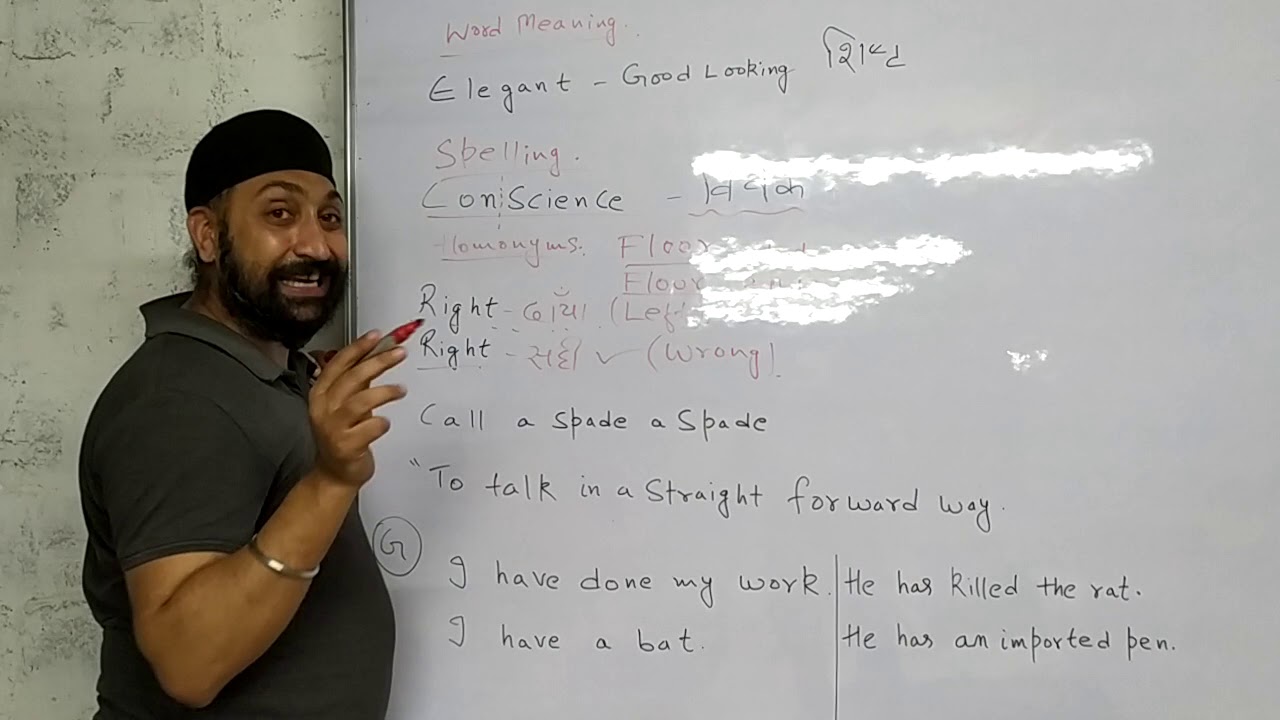 Word Meaning.
Elegant - Good Looking
Spelling.
Conscience -
Homonyms: Floor
Flour
Right - (Left
Right - ✓ (Wrong)
Call a spade a spade
"To talk in a straight forward way.
G
I have done my work. He has killed the rat.
I have a bat. He has an imported pen.